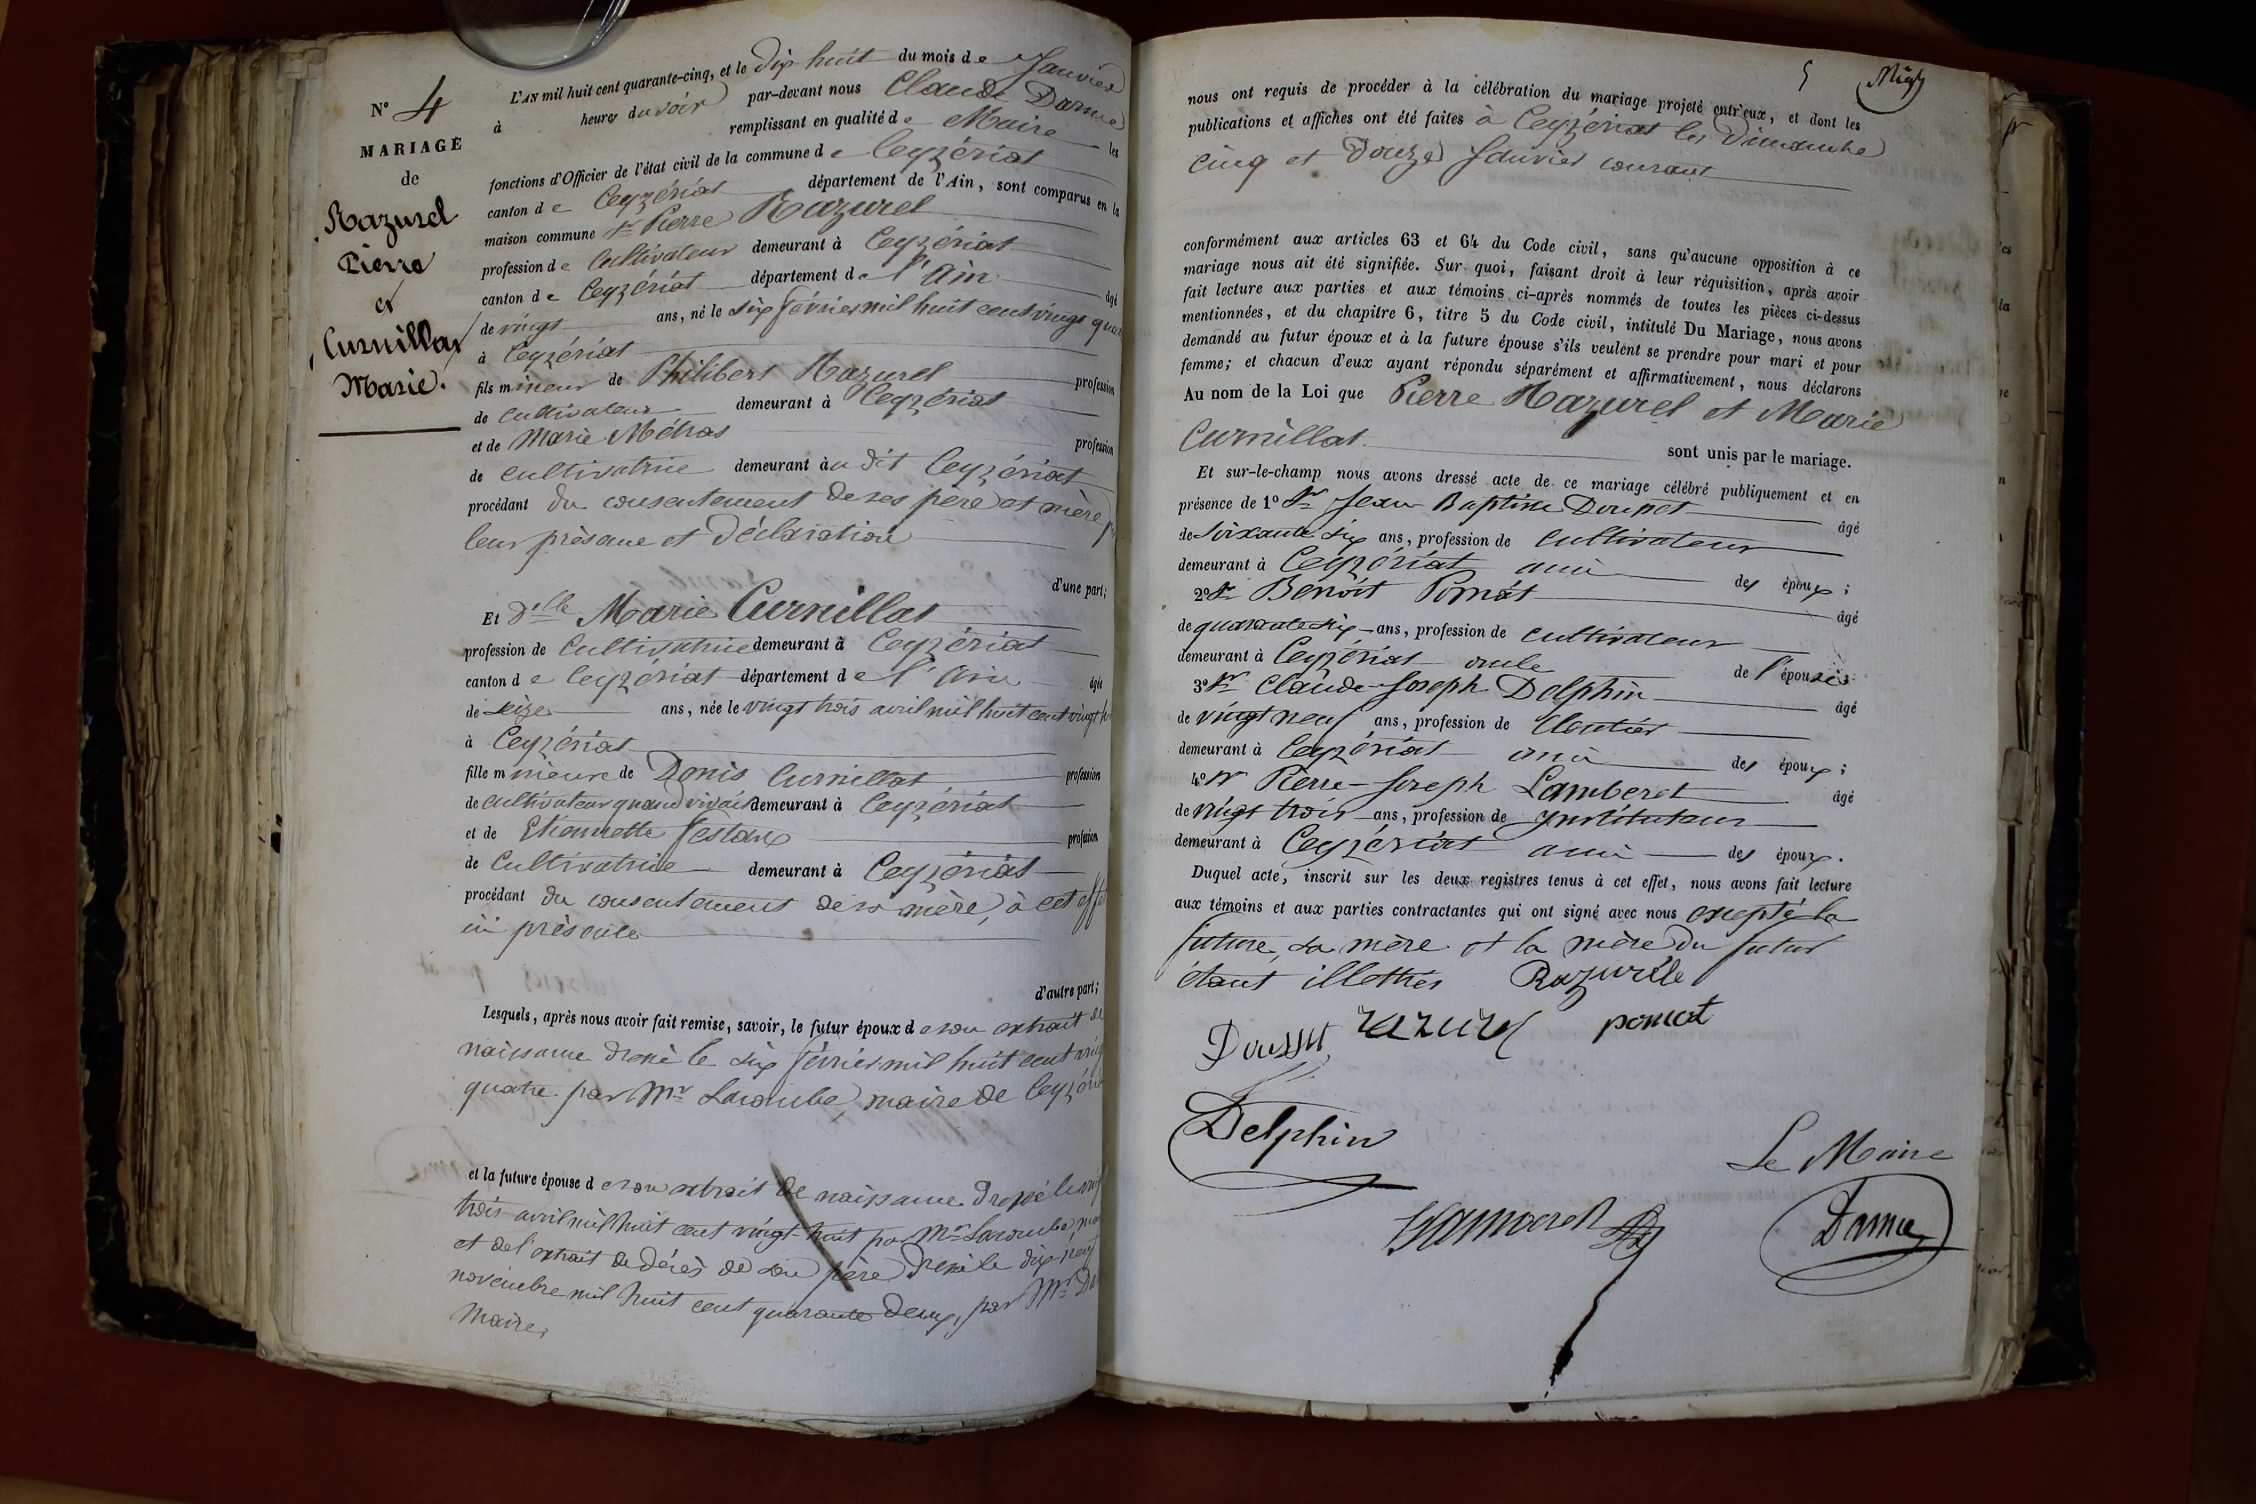 N° 4
MARIAGE
de
Razurel
Pierre
et
Curnillat
Marie.
L'AN mil huit cent quarante-cinq, et le dix huit du mois de Janvier
à heures du soir par-devant nous Claude Darme
remplissant en qualité de Maire les
fonctions d'Officier de l'état civil de la commune de Ceyzériat
canton de Ceyzériat département de l'Ain, sont comparus en la
maison commune Sr Pierre Razurel
profession de Cultivateur demeurant à Ceyzériat
canton de Ceyzériat département de l'Ain âgé
de vingt ans, né le six février mil huit cent vingt quatre
à Ceyzériat
fils mineur de Philibert Razurel profession
de cultivateur demeurant à Ceyzériat
et de Marie Métras profession
de cultivatrice demeurant au dit Ceyzériat
procédant du consentement de ses père et mère
leur présence et déclaration
d'une part;
Et dlle Marie Curnillat
profession de Cultivatrice demeurant à Ceyzériat
canton de Ceyzériat département de l'Ain âgée
de seize ans, née le vingt trois avril mil huit cent vingt
à Ceyzériat
fille mineure de Denis Curnillat profession
de cultivateur quand vivait demeurant à Ceyzériat
et de Etiennette Festaz profession
de Cultivatrice demeurant à Ceyzériat
procédant du consentement de sa mère, à cet effet
ici présente
d'autre part;
Lesquels, après nous avoir fait remise, savoir, le futur époux de son extrait de
naissance dressé le six février mil huit cent vingt
quatre par Mr Lacombe, maire de Ceyzériat
et la future épouse de son extrait de naissance dressé le vingt
trois avril mil huit cent vingt-huit par Mr Lacombe, maire
et de l'extrait de décès de son père dressé le dix neuf
novembre mil huit cent quarante deux, par Mr
Maire,
5
nous ont requis de procéder à la célébration du mariage projeté entr'eux, et dont les
publications et affiches ont été faites à Ceyzériat les Dimanche
cinq et Douze Janvier courant
conformément aux articles 63 et 64 du Code civil, sans qu'aucune opposition à ce
mariage nous ait été signifiée. Sur quoi, faisant droit à leur réquisition, après avoir
fait lecture aux parties et aux témoins ci-après nommés de toutes les pièces ci-dessus
mentionnées, et du chapitre 6, titre 5 du Code civil, intitulé Du Mariage, nous avons
demandé au futur époux et à la future épouse s'ils veulent se prendre pour mari et pour
femme; et chacun d'eux ayant répondu séparément et affirmativement, nous déclarons
Au nom de la Loi que Pierre Razurel et Marie
Curnillat
sont unis par le mariage.
Et sur-le-champ nous avons dressé acte de ce mariage célébré publiquement et en
présence de 1° Sr Jean Baptiste Doupet âgé
de soixante six ans, profession de Cultivateur
demeurant à Ceyzériat ami des époux;
2° Sr Benoît Pomat âgé
de quarante six ans, profession de cultivateur
demeurant à Ceyzériat oncle de l'épouse
3° Sr Claude Joseph Delphin âgé
de vingt neuf ans, profession de Cloutier
demeurant à Ceyzériat ami des époux;
4° Sr Pierre-Joseph Lamberet âgé
de vingt trois ans, profession de Instituteur
demeurant à Ceyzériat ami des époux.
Duquel acte, inscrit sur les deux registres tenus à cet effet, nous avons fait lecture
aux témoins et aux parties contractantes qui ont signé avec nous excepté la
future, sa mère et la mère du futur
étant illettrés Razurel
razurel pomat
Delphin
Le Maire
Lamberet
Darme